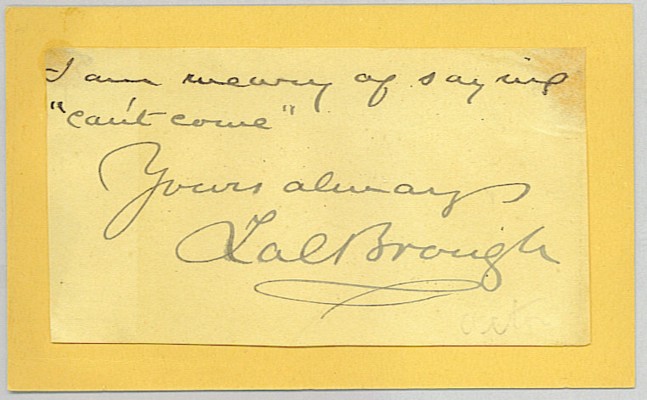 I am weary of saying
"can't come"
Yours always
Lal Brough